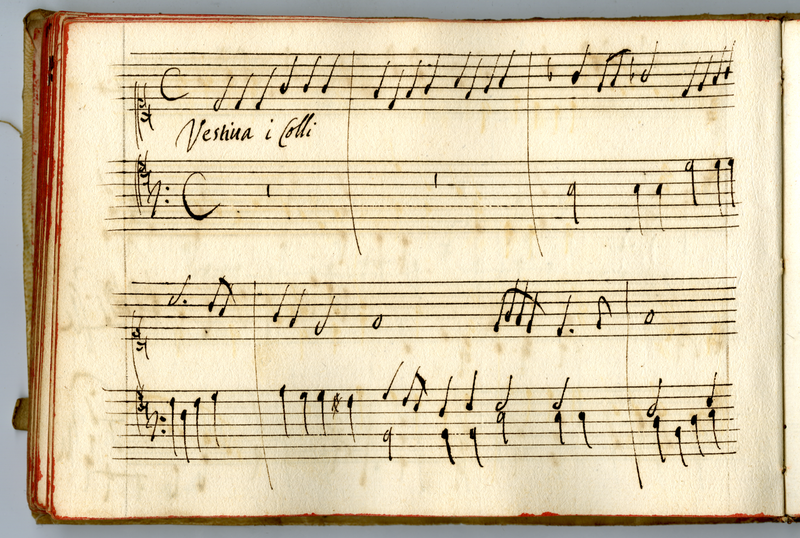 Vestiua i Colli